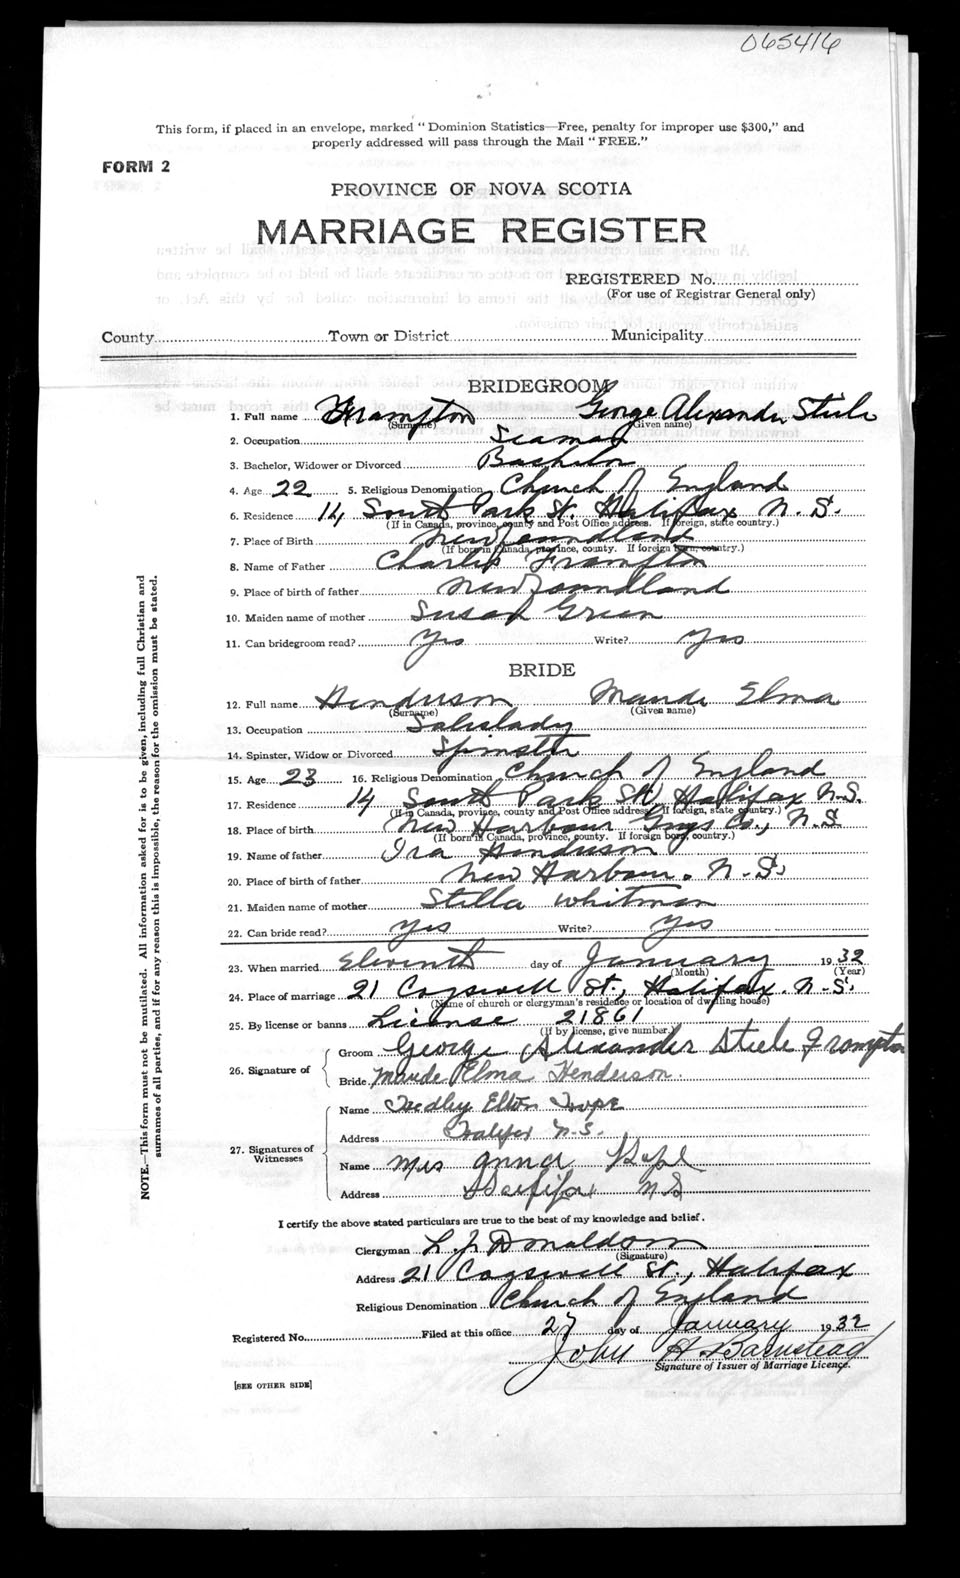 065416
This form, if placed in an envelope, marked "Dominion Statistics—Free, penalty for improper use $300," and
properly addressed will pass through the Mail "FREE."
FORM 2
PROVINCE OF NOVA SCOTIA
MARRIAGE REGISTER
REGISTERED No.
(For use of Registrar General only)
County Town or District Municipality
BRIDEGROOM
1. Full name Frampton George Alexander Steele
(Surname) (Given name)
2. Occupation Seaman
3. Bachelor, Widower or Divorced Bachelor
4. Age 22 5. Religious Denomination Church of England
6. Residence 14 South Park St. Halifax N.S.
(If in Canada, province, county and Post Office address. If foreign, state country.)
7. Place of Birth Newfoundland
(If born in Canada, province, county. If foreign born, country.)
8. Name of Father Charles Frampton
9. Place of birth of father Newfoundland
10. Maiden name of mother Susan Green
11. Can bridegroom read? Yes Write? Yes
BRIDE
12. Full name Henderson Maude Elma
(Surname) (Given name)
13. Occupation Saleslady
14. Spinster, Widow or Divorced Spinster
15. Age 23 16. Religious Denomination Church of England
17. Residence 14 South Park St., Halifax N.S.
(If in Canada, province, county and Post Office address. If foreign, state country.)
18. Place of birth New Harbour Guys Co., N.S.
(If born in Canada, province, county. If foreign born, country.)
19. Name of father Ira Henderson
20. Place of birth of father New Harbour. N.S.
21. Maiden name of mother Stella Whitman
22. Can bride read? Yes Write? Yes
23. When married Eleventh day of January 1932
(Month) (Year)
24. Place of marriage 21 Cogswell St., Halifax. N.S.
(Name of church or clergyman's residence or location of dwelling house)
25. By license or banns License 21861
(If by license, give number.)
26. Signature of
Groom George Alexander Steele Frampton
Bride Maude Elma Henderson.
27. Signatures of Witnesses
Name Elton
Address Halifax N.S.
Name Mrs Anna
Address Halifax NS
I certify the above stated particulars are true to the best of my knowledge and belief.
Clergyman L. J. Donaldson
(Signature)
Address 21 Cogswell St., Halifax
Religious Denomination Church of England
Registered No. Filed at this office 27 day of January 1932
John H Barnstead
Signature of Issuer of Marriage Licence.
[SEE OTHER SIDE]
NOTE.—This form must not be mutilated. All information asked for is to be given, including full Christian and
surnames of all parties, and if for any reason this is impossible, the reason for the omission must be stated.